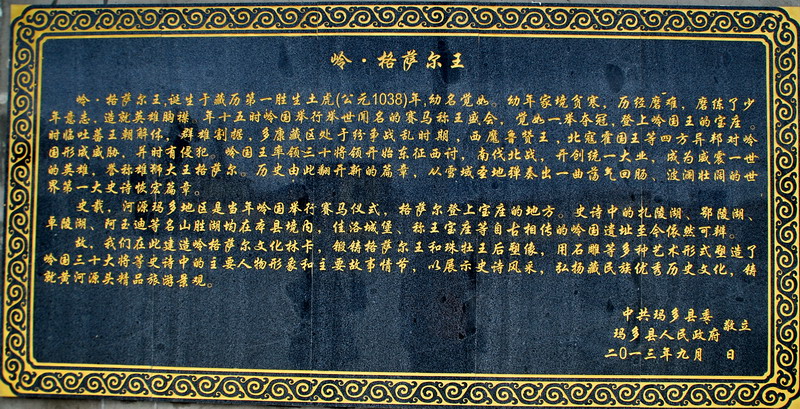 岭·格萨尔王
岭·格萨尔王，诞生于藏历第一胜生土虎(公元1038)年，幼名觉如。幼年家境贫寒，历经磨难，磨练了少
年意志，造就英雄胸襟。年十五时岭国举行举世闻名的赛马称王盛会，觉如一举夺冠，登上岭国王的宝座。
时临吐蕃王朝解体，群雄割据，多康藏区处于纷争战乱时期，西魔鲁赞王，北寇霍国王等四方异邦对岭
国形成威胁，并时有侵犯。岭国王率领三十将领开始东征西讨，南伐北战，开创统一大业，成为威震一世
的英雄，誉称雄狮大王格萨尔。历史由此翻开新的篇章，从雪域圣地弹奏出一曲荡气回肠、波澜壮阔的世
界第一大史诗恢宏篇章。
史载，河源玛多地区是当年岭国举行赛马仪式，格萨尔登上宝座的地方。史诗中的扎陵湖、鄂陵湖、
卓陵湖、阿玉迪等名山胜湖均在本县境内，佳洛城堡、称王宝座等自古相传的岭国遗址至今依然可辩。
故，我们在此建造岭格萨尔文化林卡，锻铸格萨尔王和珠牡王后塑像，用石雕等多种艺术形式塑造了
岭国三十大将等史诗中的主要人物形象和主要故事情节，以展示史诗风采，弘扬藏民族优秀历史文化，铸
就黄河源头精品旅游景观。
中共玛多县委
玛多县人民政府 敬立
二〇一三年九月 日